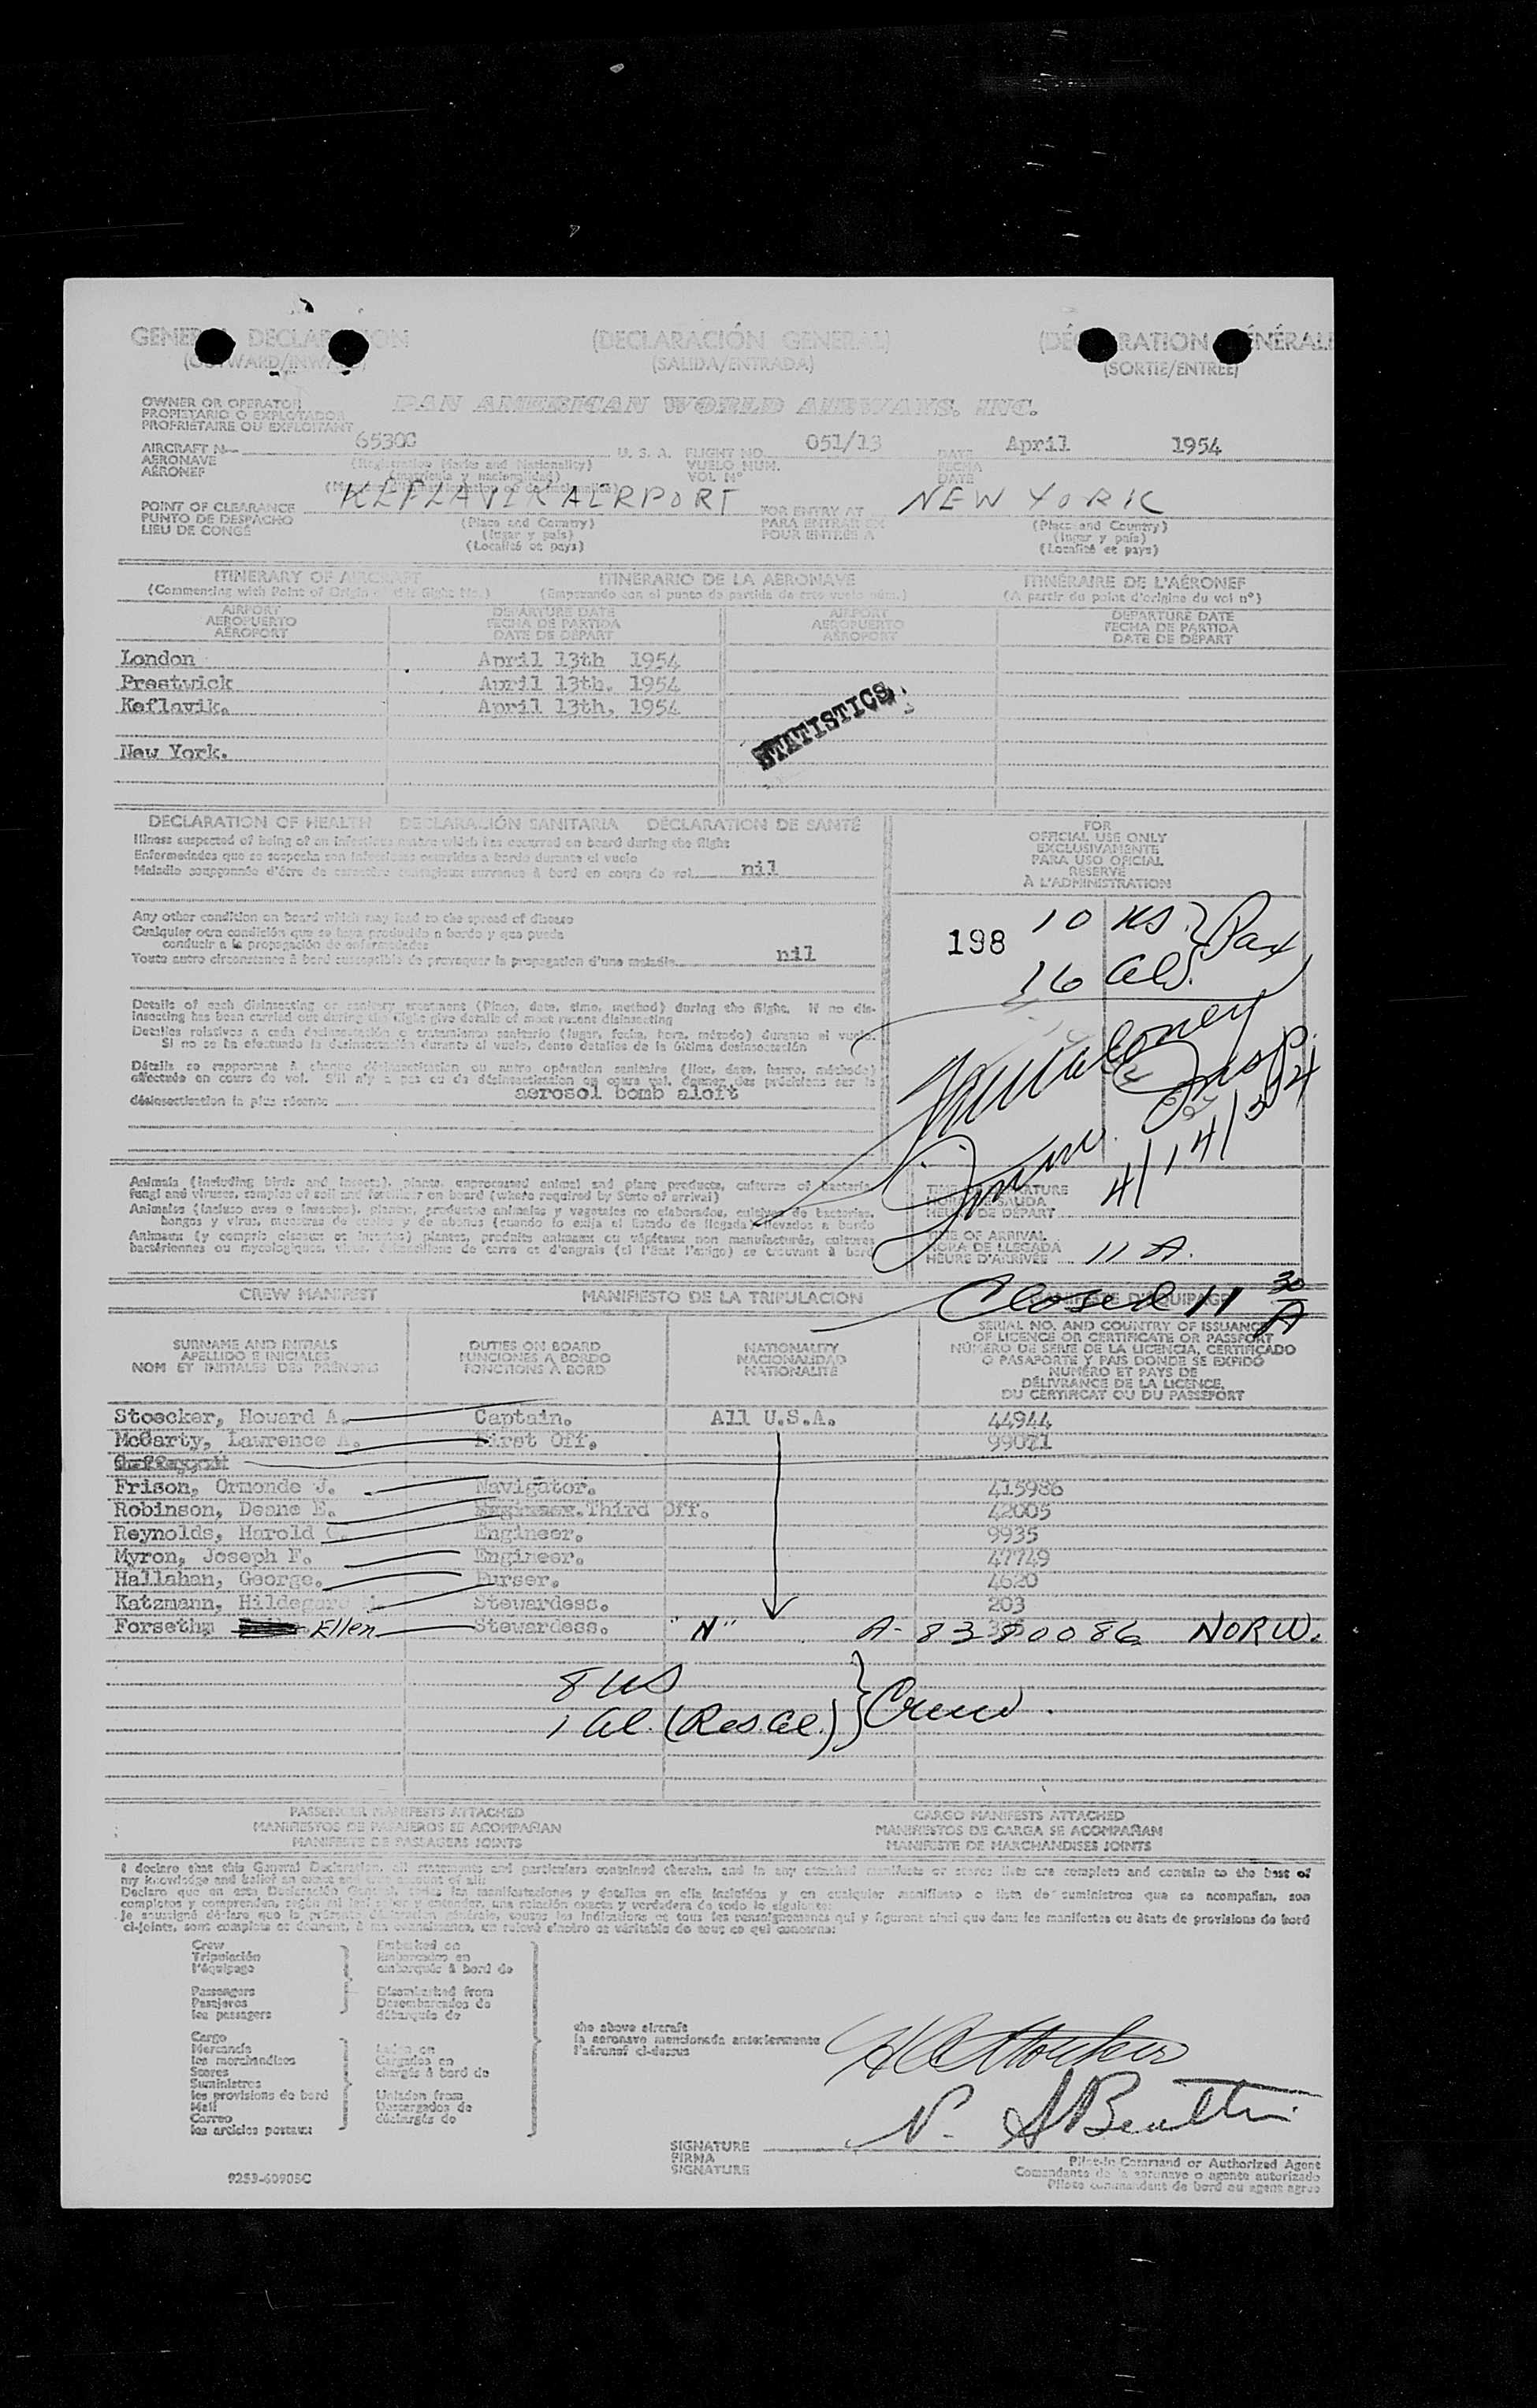 GENERAL DECLARATION (DECLARACIÓN GENERAL) (DÉCLARATION GÉNÉRALE
(OUTWARD/INWARD) (SALIDA/ENTRADA) (SORTIE/ENTRÉE)
OWNER OR OPERATOR
PROPIETARIO O EXPLOTADOR
PROPRIÉTAIRE OU EXPLOITANT
PAN AMERICAN WORLD AIRWAYS, INC.
AIRCRAFT N— 65300 U. S. A. FLIGHT NO. 051/13 DATE April 1954
AERONAVE (Registration Marks and Nationality) VUELO NUM. FECHA
AÉRONEF (matrícula y nacionalidad) VOL Nº DATE
POINT OF CLEARANCE KEFLAVIK AIRPORT FOR ENTRY AT NEW YORK
PUNTO DE DESPACHO (Place and Country) PARA ENTRAR EN (Place and Country)
LIEU DE CONGÉ (lugar y país) POUR ENTRÉE A (lugar y país)
(Localité et pays) (Localité et pays)
ITINERARY OF AIRCRAFT ITINERARIO DE LA AERONAVE ITINÉRAIRE DE L'AÉRONEF
(Commencing with Point of Origin of this flight No.) (Empezando con el punto de partida de este vuelo núm.) (A partir du point d'origine du vol nº)
AIRPORT DEPARTURE DATE AIRPORT DEPARTURE DATE
AEROPUERTO FECHA DE PARTIDA AEROPUERTO FECHA DE PARTIDA
AÉROPORT DATE DE DÉPART AÉROPORT DATE DE DÉPART
London April 13th 1954
Prestwick April 13th, 1954
Keflavik. April 13th, 1954
STATISTICS
New York.
DECLARATION OF HEALTH DECLARACIÓN SANITARIA DÉCLARATION DE SANTÉ
Illness suspected of being of an infectious nature which has occurred on board during the flight
Enfermedades que se sospecha son infecciosas ocurridas a bordo durante el vuelo
Maladie soupçonnée d'être de caractère contagieux survenue à bord en cours de vol nil
FOR
OFFICIAL USE ONLY
EXCLUSIVAMENTE
PARA USO OFICIAL
RÉSERVÉ
À L'ADMINISTRATION
Any other condition on board which may lead to the spread of disease
Cualquier otra condición que se haya producido a bordo y que pueda
conducir a la propagación de enfermedades
Toute autre circonstance à bord susceptible de provoquer la propagation d'une maladie nil
198
10 US } Pax
16 Als.
Details of each disinsecting or sanitary treatment (Place, date, time, method) during the flight. If no dis-
insecting has been carried out during the flight give details of most recent disinsecting
Detalles relativos a cada desinsectación o tratamiento sanitario (lugar, fecha, hora, método) durante el vuelo.
Si no se ha efectuado la desinsectación durante el vuelo, dense detalles de la última desinsectación
Détails se rapportant à chaque désinsectisation ou autre opération sanitaire (lieu, date, heure, méthode)
effectuée en cours de vol. S'il n'y a pas eu de désinsectisation en cours vol, donner des précisions sur la
désinsectisation la plus récente aerosol bomb aloft
Maloney
Insp.
Imm.
4/14/54
Animals (including birds and insects), plants, unprocessed animal and plant products, cultures of bacteria,
fungi and viruses, samples of soil and fertilizer on board (where required by State of arrival)
Animales (incluso aves e insectos), plantas, productos animales y vegetales no elaborados, cultivos de bacterias,
hongos y virus, muestras de suelos y de abonos (cuando lo exija el Estado de llegada) llevados a bordo
Animaux (y compris oiseaux et insectes) plantes, produits animaux ou végétaux non manufacturés, cultures
bactériennes ou mycologiques, virus, échantillons de terre et d'engrais (si l'État l'exige) se trouvant à bord
TIME OF DEPARTURE
HORA DE SALIDA
HEURE DE DÉPART
TIME OF ARRIVAL
HORA DE LLEGADA
HEURE D'ARRIVÉE 11 A.
Closed 11 30 A
CREW MANIFEST MANIFIESTO DE LA TRIPULACION MANIFESTE D'ÉQUIPAGE
SURNAME AND INITIALS
APELLIDO E INICIALES
NOM ET INITIALES DES PRÉNOMS
DUTIES ON BOARD
FUNCIONES A BORDO
FONCTIONS À BORD
NATIONALITY
NACIONALIDAD
NATIONALITÉ
SERIAL NO. AND COUNTRY OF ISSUANCE
OF LICENCE OR CERTIFICATE OR PASSPORT
NÚMERO DE SERIE DE LA LICENCIA, CERTIFICADO
O PASAPORTE Y PAIS DONDE SE EXPIDÓ
NUMÉRO ET PAYS DE
DÉLIVRANCE DE LA LICENCE,
DU CERTIFICAT OU DU PASSEPORT
Stoecker, Howard A. Captain. All U.S.A. 44944
McCarty, Lawrence A. First Off. 99071
Frison, Ormonde J. Navigator. 415986
Robinson, Deane E. Third Off. 42005
Reynolds, Harold C. Engineer. 9935
Myron, Joseph F. Engineer. 47749
Hallahan, George. Purser. 4620
Katzmann, Hildegard M. Stewardess. 203
Forseth, Ellen Stewardess. "N" A-8380086 NORW.
8 US } Crew.
1 Al. (Res. Al.)
PASSENGER MANIFESTS ATTACHED
MANIFIESTOS DE PASAJEROS SE ACOMPAÑAN
MANIFESTE DE PASSAGERS JOINTS
CARGO MANIFESTS ATTACHED
MANIFIESTOS DE CARGA SE ACOMPAÑAN
MANIFESTE DE MARCHANDISES JOINTS
I declare that this General Declaration, all statements and particulars contained therein, and in any attached manifests or stores lists are complete and contain to the best of
my knowledge and belief an exact and true account of all:
Declaro que en esta Declaración General, todas las manifestaciones y detalles en ella incluidos y en cualquier manifiesto o lista de suministros que se acompañan, son
completos y comprenden, según mi leal saber y entender, una relación exacta y verdadera de todo lo siguiente:
Je soussigné déclare que la présente déclaration générale, toutes les indications et tous les renseignements qui y figurent ainsi que dans les manifestes ou états de provisions de bord
ci-joints, sont complets et donnent, à ma connaissance, un relevé sincère et véritable de tout ce qui concerne:
Crew
Tripulación
l'équipage
Passengers
Pasajeros
les passagers
Cargo
Mercancía
les marchandises
Stores
Suministros
les provisions de bord
Mail
Correo
les articles postaux
Embarked on
Embarcados en
embarqués à bord de
Disembarked from
Desembarcados de
débarqués de
Laden on
Cargados en
chargés à bord de
Unladen from
Descargados de
déchargés de
the above aircraft
la aeronave mencionada anteriormente
l'aéronef ci-dessus
SIGNATURE
FIRMA
SIGNATURE
Pilot-in Command or Authorized Agent
Comandante de la aeronave o agente autorizado
Pilote commandant de bord ou agent agréé
9253-60905C